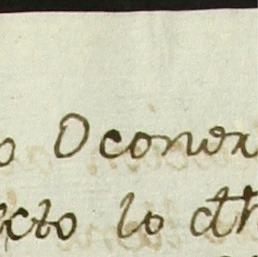 o Oconor
ecto lo dh